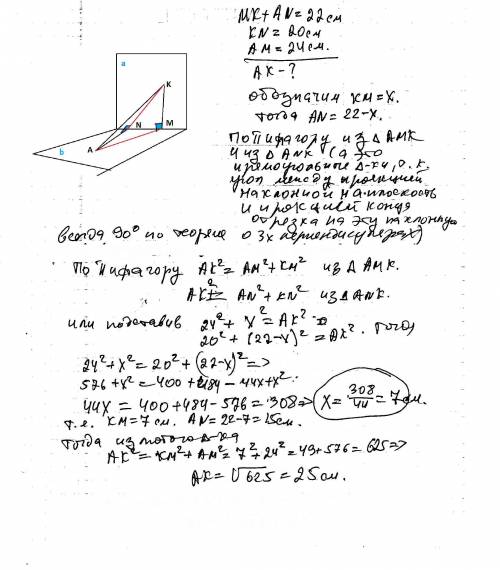 a
K
N
M
b
A
MK + AN = 22 см
KN = 20 см
AM = 24 см.
AK - ?
обозначим KM = X.
тогда AN = 22 - X.
По Пифагору из Δ AMK
и из Δ ANK (а это
прямоугольные Δ-ки, т.к.
угол между проекцией
наклонной на плоскость
и проекцией конца
отрезка на эту наклонную
всегда 90° по теореме о 3х перпендикулярах)
По Пифагору AK² = AM² + KM² из Δ AMK.
AK² = AN² + KN² из Δ ANK.
или подставив 24² + X² = AK²
20² + (22-X)² = AK². тогда
24² + X² = 20² + (22-X)² =>
576 + X² = 400 + 484 - 44X + X².
44X = 400 + 484 - 576 = 308 => X = 308/44 = 7 см.
т.е. KM = 7 см. AN = 22 - 7 = 15 см.
тогда из Δ-ка
AK² = KM² + AM² = 7² + 24² = 49 + 576 = 625 =>
AK = √625 = 25 см.